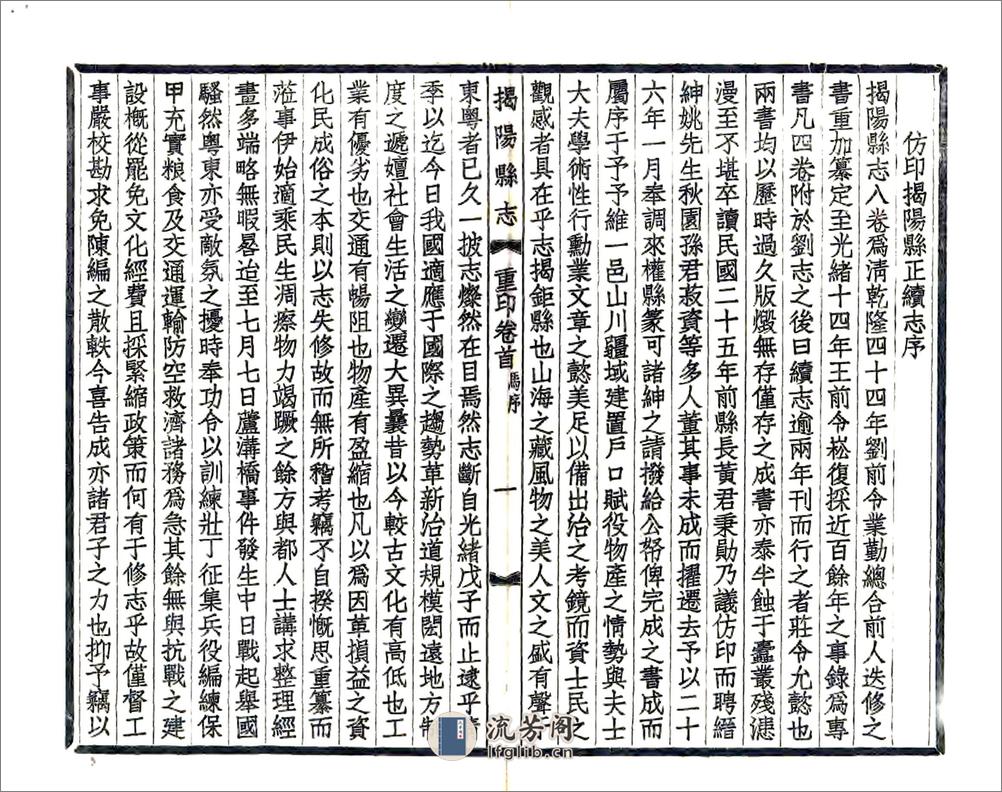 仿印揭陽縣正續志序
揭陽縣志八卷爲淸乾隆四十四年劉前令業勤總合前人迭修之
書重加纂定至光緒十四年王前令崧復採近百餘年之事錄爲專
書凡四卷附於劉志之後曰續志逾兩年刊而行之者莊令允懿也
兩書均以歷時過久版燬無存僅存之成書亦泰半蝕于蠹叢殘漶
漫至不堪卒讀民國二十五年前縣長黃君秉勛乃議仿印而聘縉
紳姚先生秋園孫君菽資等多人董其事未成而擢遷去予以二十
六年一月奉調來權縣篆可諸紳之請撥給公帑俾完成之書成而
屬序于予予維一邑山川疆域建置戶口賦役物產之情勢與夫士
大夫學術性行勳業文章之懿美足以備出治之考鏡而資士民之
觀感者具在乎志揭鉅縣也山海之藏風物之美人文之盛有聲
揭陽縣志 重印卷首 馮序 一
東粵者已久一披志燦然在目焉然志斷自光緒戊子而止逮乎淸
季以迄今日我國適應于國際之趨勢革新治道規模閎遠地方制
度之遞嬗社會生活之變遷大異曩昔以今較古文化有高低也工
業有優劣也交通有暢阻也物產有盈縮也凡以爲因革損益之資
化民成俗之本則以志失修故而無所稽考竊不自揆慨思重纂而
蒞事伊始適乘民生凋瘵物力竭蹶之餘方與都人士講求整理經
畫多端略無暇晷迨至七月七日蘆溝橋事件發生中日戰起舉國
騷然粵東亦受敵氛之擾時奉功令以訓練壯丁征集兵役編練保
甲充實粮食及交通運輸防空救濟諸務爲急其餘無與抗戰之建
設概從罷免文化經費且採緊縮政策而何有于修志乎故僅督工
事嚴校勘求免陳編之散軼今喜告成亦諸君子之力也抑予竊以
流芳阁
lfglib.cn